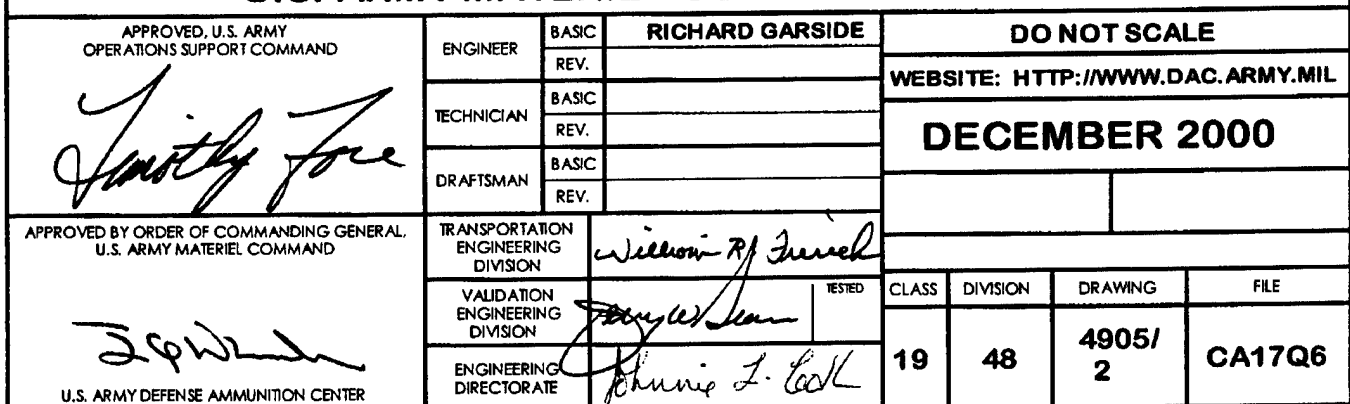 APPROVED, U.S. ARMY
OPERATIONS SUPPORT COMMAND
Timothy Fore
APPROVED BY ORDER OF COMMANDING GENERAL,
U.S. ARMY MATERIEL COMMAND
U.S. ARMY DEFENSE AMMUNITION CENTER
ENGINEER
BASIC
RICHARD GARSIDE
REV.
TECHNICIAN
BASIC
REV.
DRAFTSMAN
BASIC
REV.
TRANSPORTATION
ENGINEERING
DIVISION
William R
VALIDATION
ENGINEERING
DIVISION
TESTED
ENGINEERING
DIRECTORATE
Johnnie L.
DO NOT SCALE
WEBSITE: HTTP://WWW.DAC.ARMY.MIL
DECEMBER 2000
CLASS
DIVISION
DRAWING
FILE
19
48
4905/
2
CA17Q6